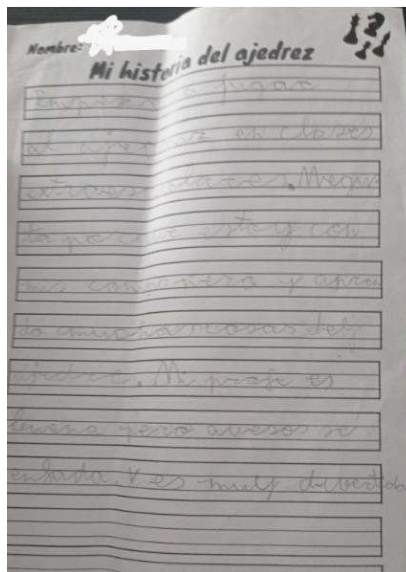 Nombre:
Mi historia del ajedrez
Empecé a jugar
al ajedrez en clases
extraescolares. Megus
ta porque estoy con
mis compañero y apren
do muchas cosas del
ajedrez. Mi profe es
buena pero aveses se
enfada. Y es muy divertida